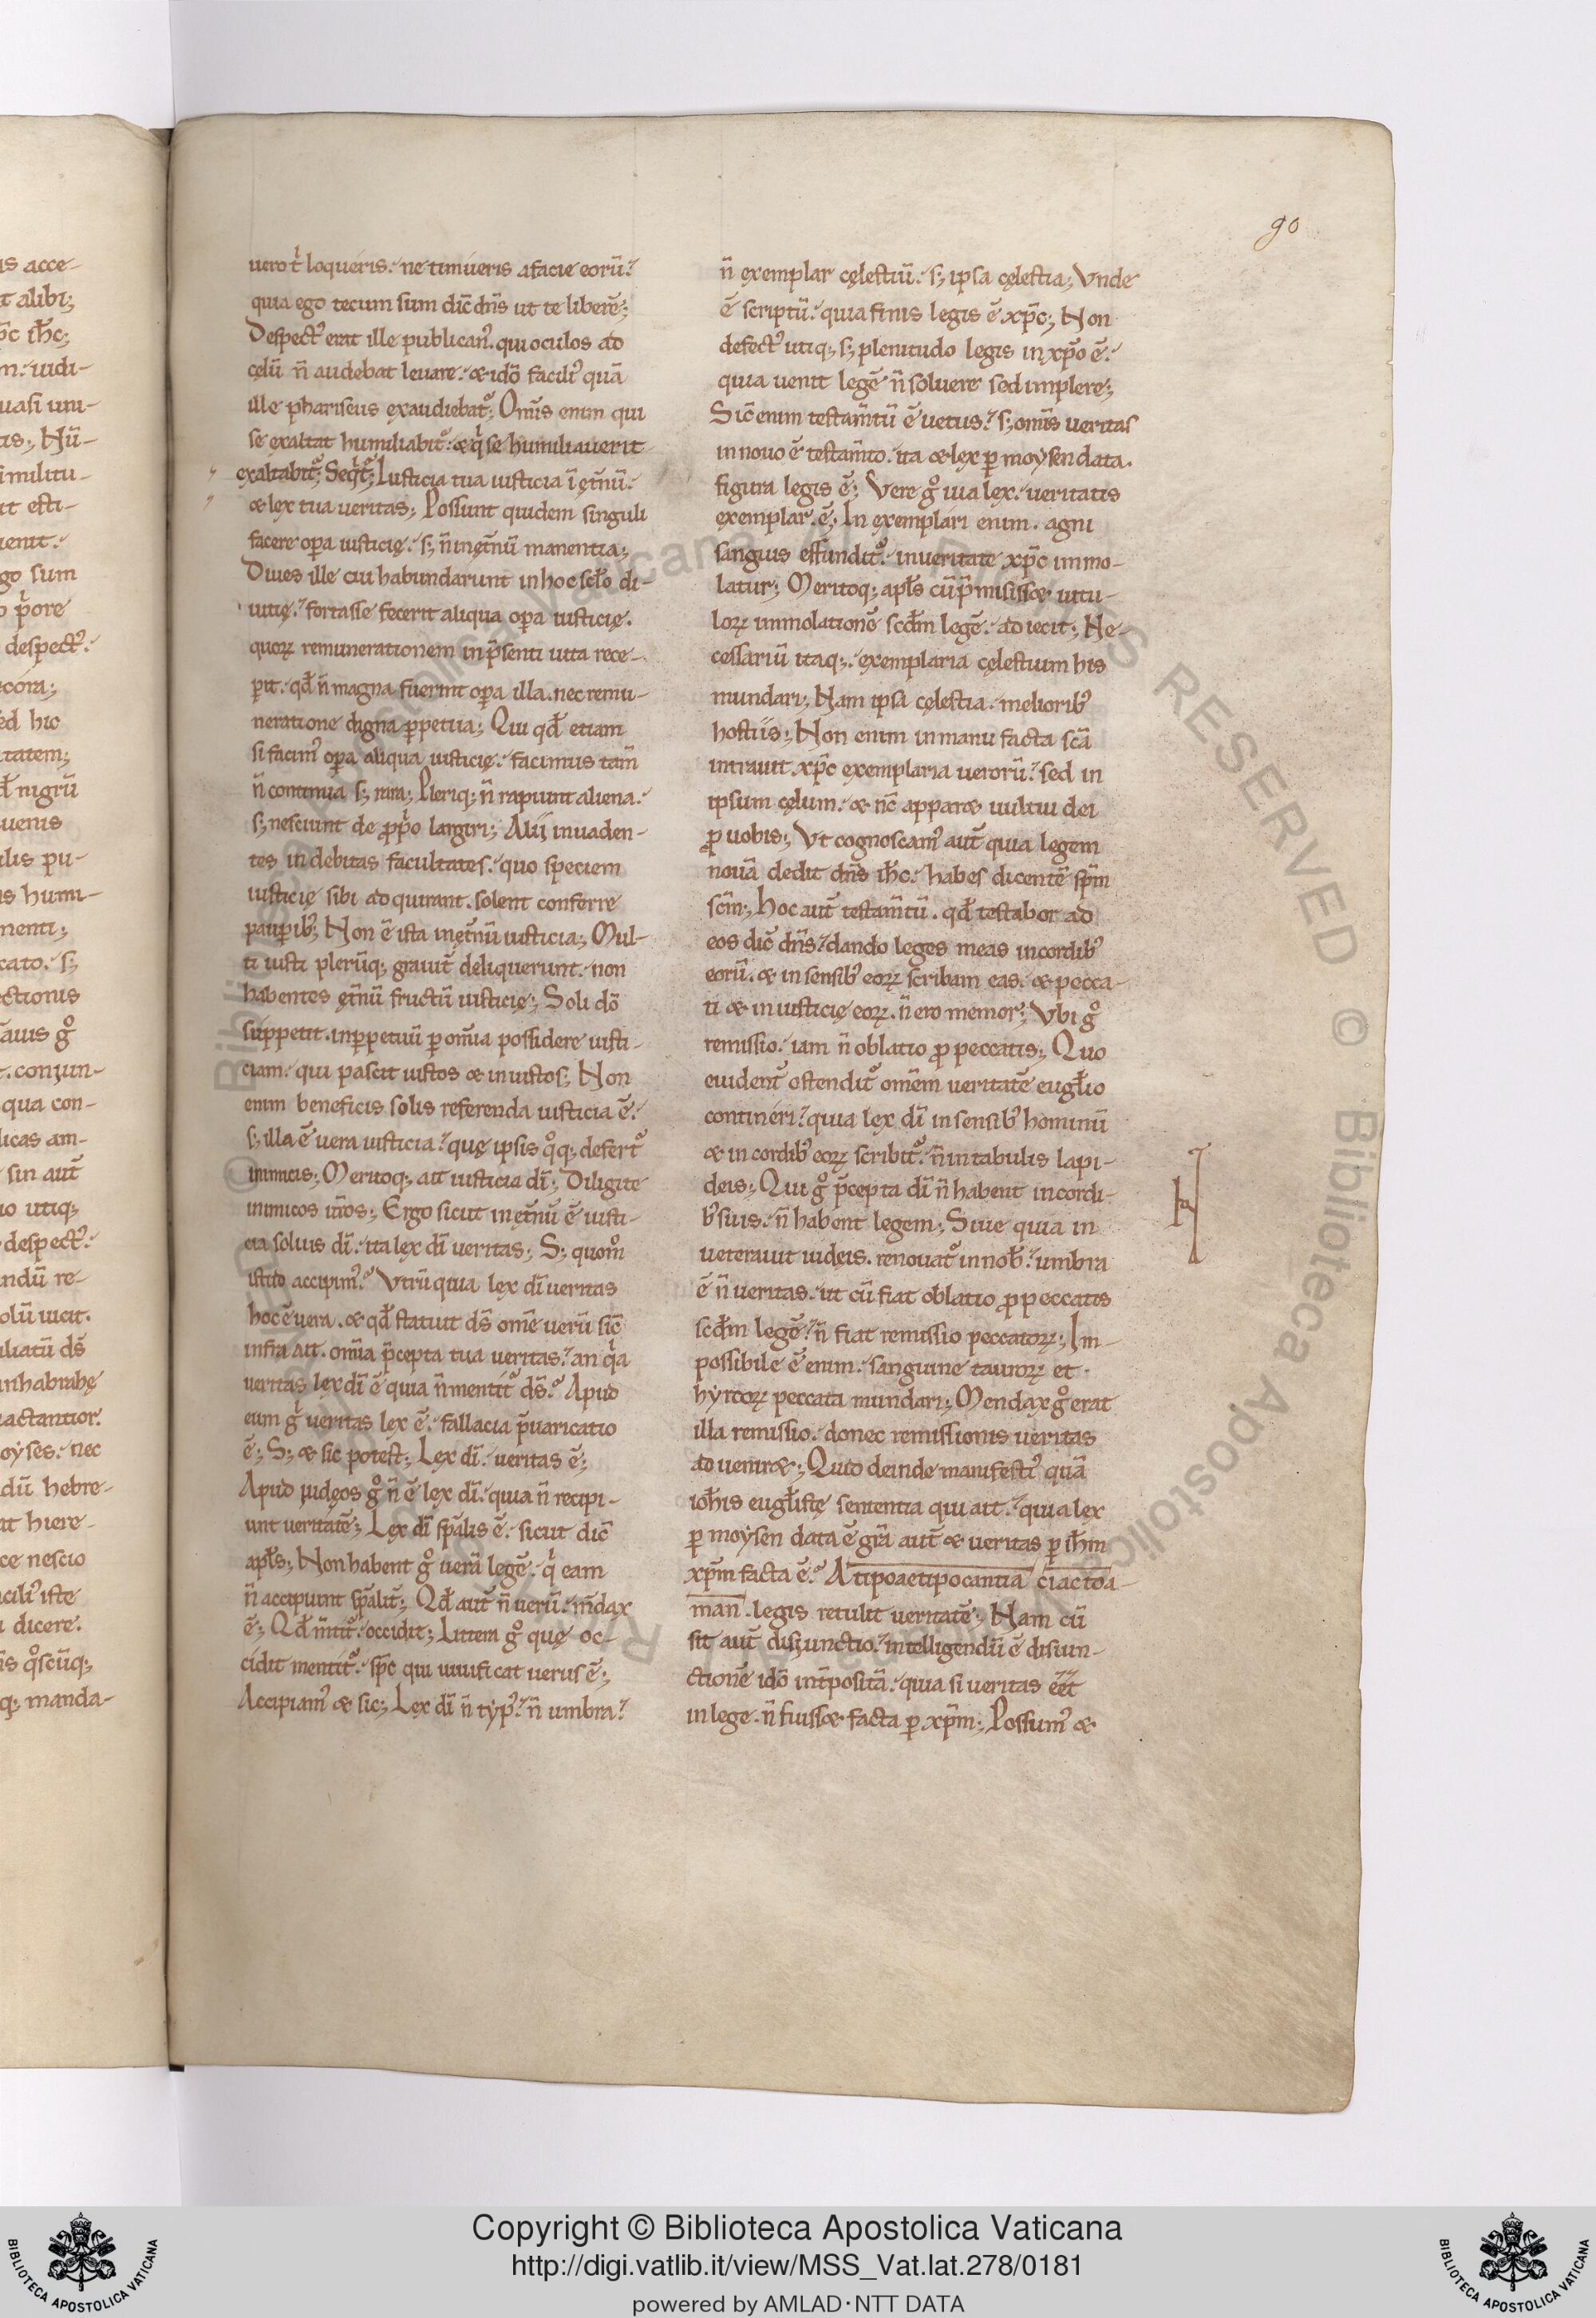 90
is acce-
t alibi;
p̄c ih̄c;
n. uidi-
uasi uni-
tis; Nū-
similitu-
it esti-
uenit.
go sum
p̄ore
despect᾿.
cora;
ed hic
tatem;
nigrū
uenis
ilis pu-
is humi-
menti;
cato. s;
ectionis
auis gͦ
. coniun-
qua con-
licas am-
sin aut̄
io utiq;
despect᾿.
ndū re-
olū uicit.
iliatū ds̄
in habrahę
iactantior.
oyses. nec
dū hebre-
it hiere-
ce nescio
cili᾿ iste
dicere.
is qͦscūq;
q; manda-
uero t̍ loqueris. ne timueris a facie eorū.
quia ego tecum sum dic̄ dn̄s ut te liberē;
Despect᾿ erat ille publican᾿. qui oculos ad
cęlū n̄ audebat leuare. & idō facili᾿ quā
ille phariseus exaudiebat᾿. Om̄s enim qui
se exaltat humiliabit᾿. & q̍ se humiliauerit
exaltabit᾿; Seqt᾿; Iusticia tua iusticia ī ęt̄nū.
& lex tua ueritas; Possunt quidem singuli
facere oꝑa iusticię. s; n̄ in ęt̄nū manentia;
Diues ille cui habundarunt in hoc sc̄lo di-
uitię. fortasse fecerit aliqua oꝑa iusticię.
quoꝝ remunerationem in p̄senti uita rece-
ꝑit. qđ n̄ magna fuerint oꝑa illa. nec remu-
neratione digna ꝑpetua; Qui qđ etiam
si facim᾿ oꝑa aliqua iusticię. facimus tam̄
n̄ continua s; rara; Pleriq; n̄ rapiunt aliena.
s; nesciunt de ꝓp̍o largiri; Alij inuaden-
tes indebitas facultates. quo speciem
iusticię sibi adquirant. solent conferre
pauꝑib᾿; Non ē ista in ęt̄nū iusticia; Mul-
ti iusti plerūq; grauit̄ deliquerunt. non
habentes ęt̄nū fructū iusticię; Soli dō
suppetit. in ꝑpetuū ꝑ om̄ia possidere iusti-
ciam. qui pascit iustos & iniustos; Non
enim beneficiis solis referenda iusticia ē.
s; illa ē uera iusticia. quę ipsis qͦq; defert᾿
inimicis; Meritoq; ait iusticia dī; Diligite
inimicos ur̄os; Ergo sicut in ęt̄nū ē iusti-
cia solius dī. ita lex dī ueritas; S; quom̊
istud accipim᾿? Vtrū quia lex dī ueritas
hoc ē uera. & qđ statuit ds̄ om̄e uerū sic̄
infra ait. om̄ia p̄cepta tua ueritas. an q̍a
ueritas lex dī ē quia n̄ mentit᾿ ds̄? Apud
eum g̍ ueritas lex ē. fallacia p̄uaricatio
ē; S; & sic potest; Lex dī. ueritas ē;
Apud iudęos gͦ n̄ ē lex dī. quia n̄ recipi-
unt ueritatē; Lex dī sp̄alis ē. sicut dic̄
apl̄s; Non habent gͦ uerā legē. q̍ eam
n̄ accipiunt sp̄alit̄; Qđ aut̄ n̄ uerū. m̄dax
ē; Qđ m̄tit᾿. occidit; Littera gͦ quę oc-
cidit mentit᾿. sp̄c qui uiuificat uerus ē;
Accipiam᾿ & sic; Lex dī n̄ typ᾿. n̄ umbra.
n̄ exemplar cęlestiū. s; ipsa cęlestia; Vnde
ē scriptū. quia finis legis ē xp̄c; Non
defect᾿ utiq; s; plenitudo legis in xp̄o ē.
quia uenit legē n̄ soluere sed implere;
Sic̄ enim testam̄tū ē uetus. s; om̄is ueritas
in nouo ē testam̄to. ita & lex ꝑ moysen data.
figura legis ē; Vere gͦ uia lex. ueritatis
exemplar ē; In exemplari enim. agni
sanguis effundit᾿. in ueritate xp̄c immo-
latur; Meritoq; apl̄s cū p̄misiss& uitu-
loꝝ immolationē scđm legē. adiecit; Ne-
cessariū itaq;. exemplaria cęlestium his
mundari; Nam ipsa cęlestia. meliorib᾿
hostiis; Non enim in manu facta sc̄a
intrauit xp̄c exemplaria uerorū. sed in
ipsum cęlum. & nc̄ appar& uultui dei
ꝓ uobis; Vt cognoscam᾿ aut̄ quia legem
nouā dedit dn̄s ih̄c. habes dicentē sp̄m
sc̄m; Hoc aut̄ testam̄tū. qđ testabor ad
eos dic̄ dn̄s. dando leges meas in cordib᾿
eorū. & in sensib᾿ eoꝝ scribam eas. & pecca-
ti & iniusticię eoꝝ. n̄ ero memor; Vbi gͦ
remissio. iam n̄ oblatio ꝓ peccatis; Quo
euident̄ ostendit᾿ om̄em ueritatē eugl̄io
contineri. quia lex dī in sensib᾿ hominū
& in cordib᾿ eoꝝ scribit᾿. n̄ in tabulis lapi-
deis; Qui gͦ p̄cepta dī n̄ habent in cordi-
b᾿ suis. n̄ habent legem; Siue quia in
ueterauit iudęis. renouat᾿ in nob̄. umbra
ē n̄ ueritas. ut cū fiat oblatio ꝓ peccatis
scđm legē. n̄ fiat remissio peccatoꝝ; Im-
possibile ē enim. sanguine tauroꝝ et
hyrcoꝝ peccata mundari; Mendax gͦ erat
illa remissio. donec remissionis ueritas
adueniret; Quid deinde manifesti᾿ quā
ioh̄is eugl̄istę sententia qui ait. quia lex
ꝑ moysen data ē gr̄a aut̄ & ueritas ꝑ ih̄m
xp̄m facta ē? Atipoaetipocantia ciactoa-
man. legis retulit ueritatē; Nam cū
sit aut̄ disiunctio. intelligendū ē disiun-
ctionē idō int̄positā. quia si ueritas ēēt
in lege. n̄ fuiss& facta ꝑ xp̄m; Possum᾿ &
Copyright © Biblioteca Apostolica Vaticana
http://digi.vatlib.it/view/MSS_Vat.lat.278/0181
powered by AMLAD·NTT DATA